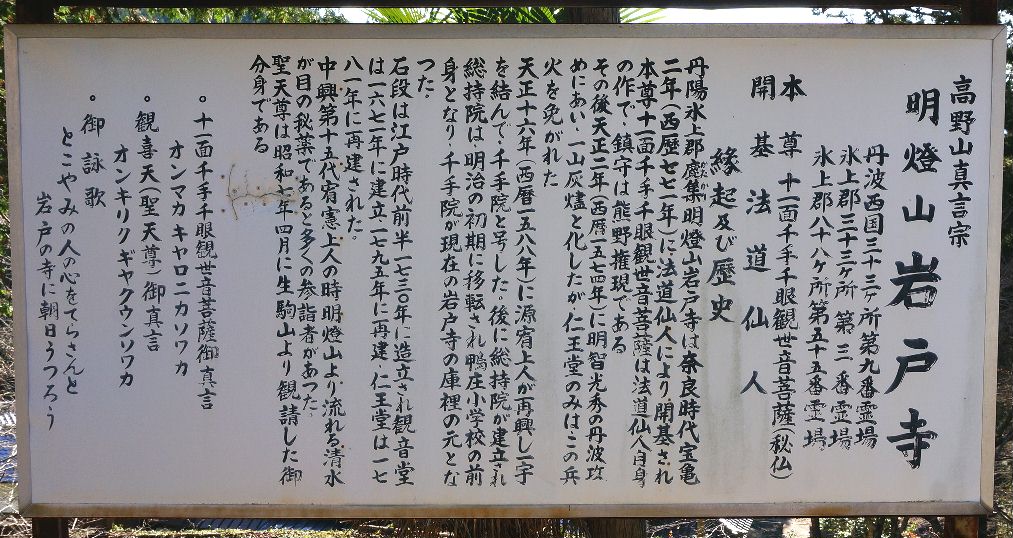 高野山真言宗
明燈山岩戸寺
丹波西国三十三ヶ所第九番霊場
氷上郡三十三ヶ所第三番霊場
氷上郡八十八ヶ所第五十五番霊場
本尊 十一面千手千眼観世音菩薩(秘仏)
開基 法道仙人
縁起及び歴史
丹陽氷上郡塵集明燈山岩戸寺は奈良時代宝亀
二年(西歴七七一年)に法道仙人により開基され
本尊十一面千手千眼観世音菩薩は法道仙人自身
の作で、鎮守は熊野権現である
その後天正二年(西暦一五七四年)に明智光秀の丹波攻
めにあい、一山灰燼と化したが、仁王堂のみはこの兵
火を免がれた
天正十六年(西暦一五八八年)に源宥上人が再興し一宇
を結んで、千手院と号した。後に総持院が建立され
総持院は、明治の初期に移転され鴨庄小学校の前
身となり、千手院が現在の岩戸寺の庫裡の元とな
った。
石段は江戸時代前半一七三〇年に造立され観音堂
は一六七一年に建立一七九五年に再建、仁王堂は一七
八一年に再建された。
中興第十五代宥憲上人の時、明燈山より流れる清水
が目の秘薬であると多くの参詣者があつた。
聖天尊は昭和七年四月に生駒山より観請した御
分身である
。十一面千手千眼観世音菩薩御真言
オンマカキャロニカソワカ
。観喜天(聖天尊)御真言
オンキリクギャクウンソワカ
。御詠歌
とこやみの人の心をてらさんと
岩戸の寺に朝日うつろう